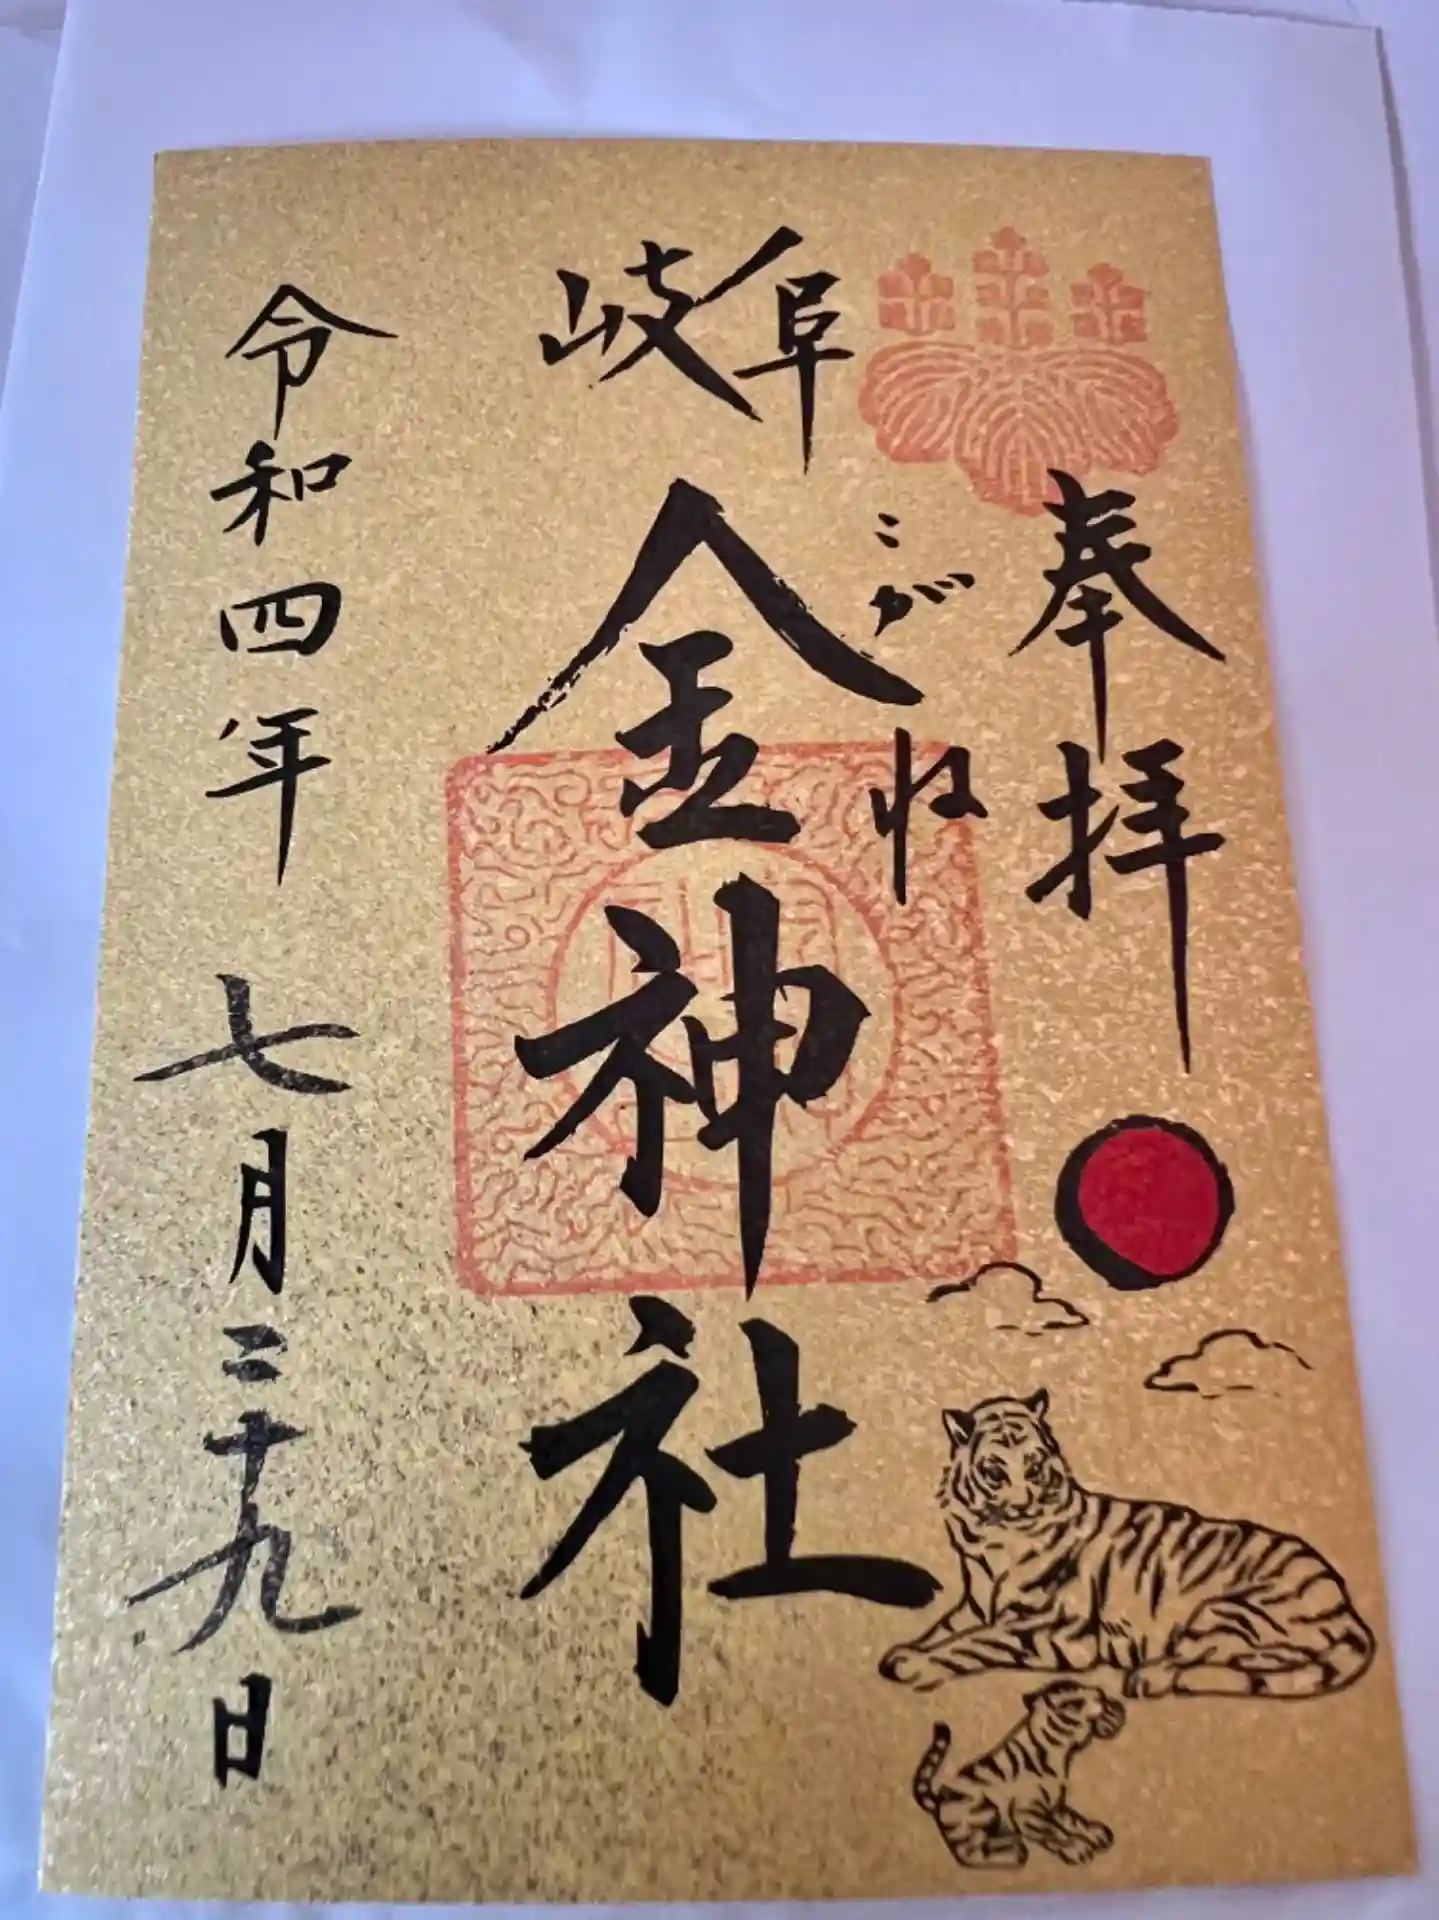 奉拝
岐阜
こがね
金神社
令和四年 七月二十九日